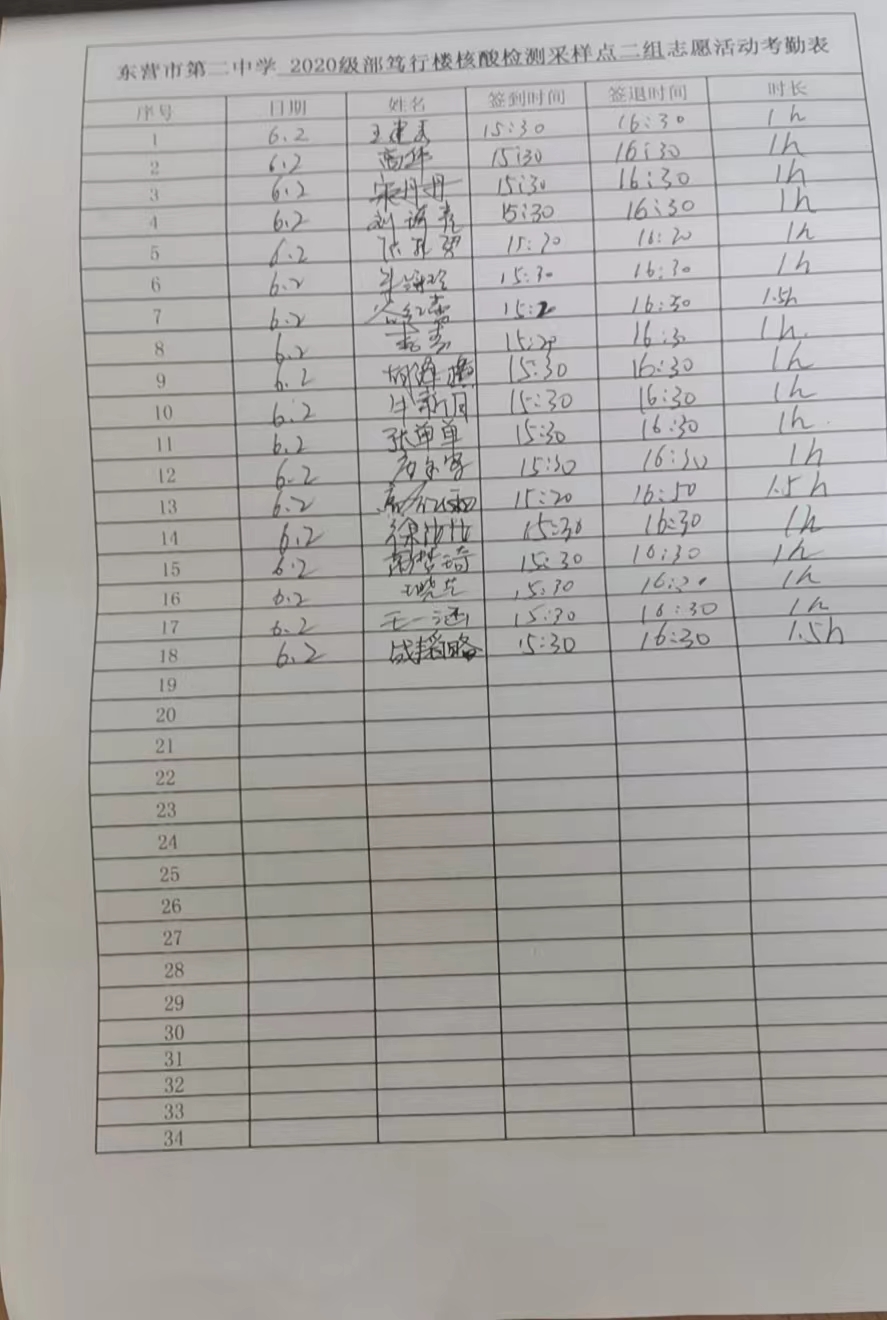 东营市第二中学 2020级部笃行楼核酸检测采样点二组志愿活动考勤表
序号 日期 姓名 签到时间 签退时间 时长
1 6.2 15:30 16:30 1h
2 6.2 15:30 16:30 1h
3 6.2 宋丹丹 15:30 16:30 1h
4 6.2 15:30 16:30 1h
5 6.2 1h
6 6.2 15:30 16:30 1h
7 6.2 15:2 1.5h
8 6.2 1h
9 6.2 15:30 16:30 1h
10 6.2 15:30 16:30 1h
11 6.2 张单单 15:30 16:30 1h
12 6.2 15:30 16:30 1h
13 6.2 15:20 16:50 1.5h
14 6.2 15:30 16:30 1h
15 6.2 15:30 16:30 1h
16 6.2 15:30 1h
17 6.2 王一涵 15:30 16:30 1h
18 6.2 战韬略 15:30 16:30 1.5h
19
20
21
22
23
24
25
26
27
28
29
30
31
32
33
34